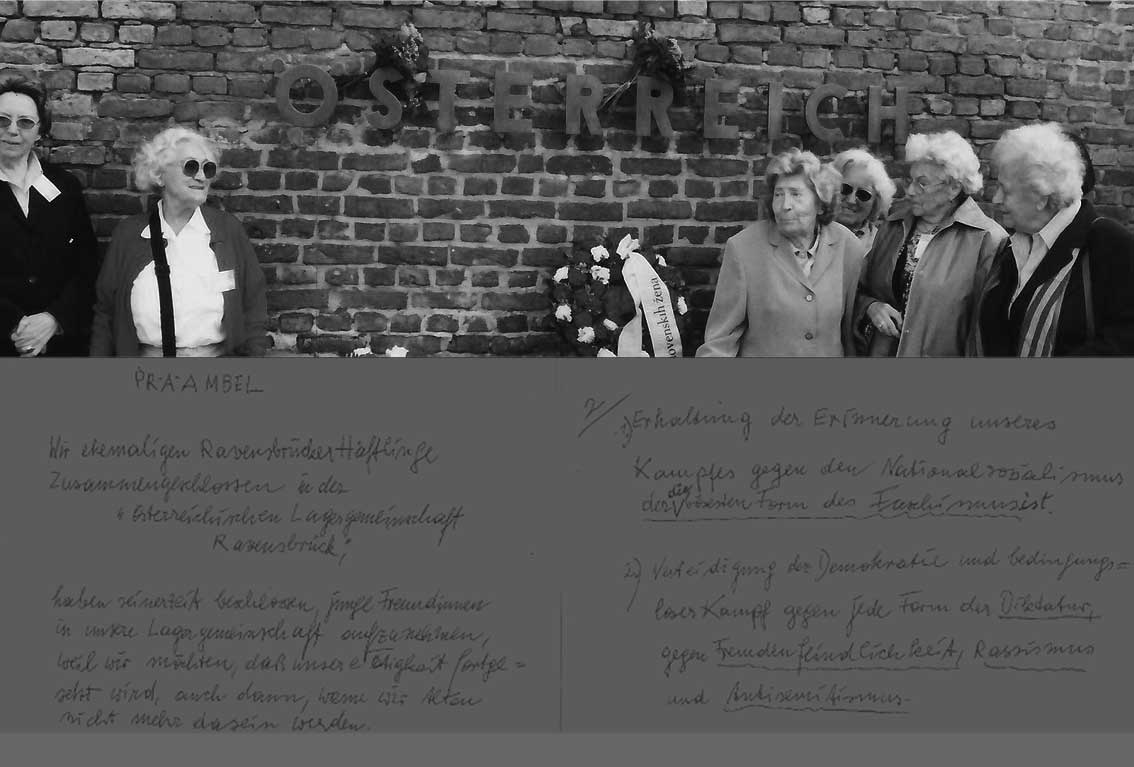 ÖSTERREICH
ovenskih žena
PRÄAMBEL
Wir ehemaligen Ravensbrücker Häftlinge
Zusammengeschlossen in der
"österreichischen Lagergemeinschaft
Ravensbrück",
haben seinerzeit beschlossen, junge Freundinnen
in unsere Lagergemeinschaft aufzunehmen,
weil wir möchten, daß unsere Tätigkeit fortge=
setzt wird, auch dann, wenn wir Alten
nicht mehr dasein werden.
2/
1) Erhaltung der Erinnerung unseres
Kampfes gegen den Nationalsozialismus
der die bösesten Form des Faschismus ist.
2) Verteidigung der Demokratie und bedingungs=
loser Kampf gegen jede Form der Diktatur,
gegen Fremdenfeindlichkeit, Rassismus
und Antisemitismus.